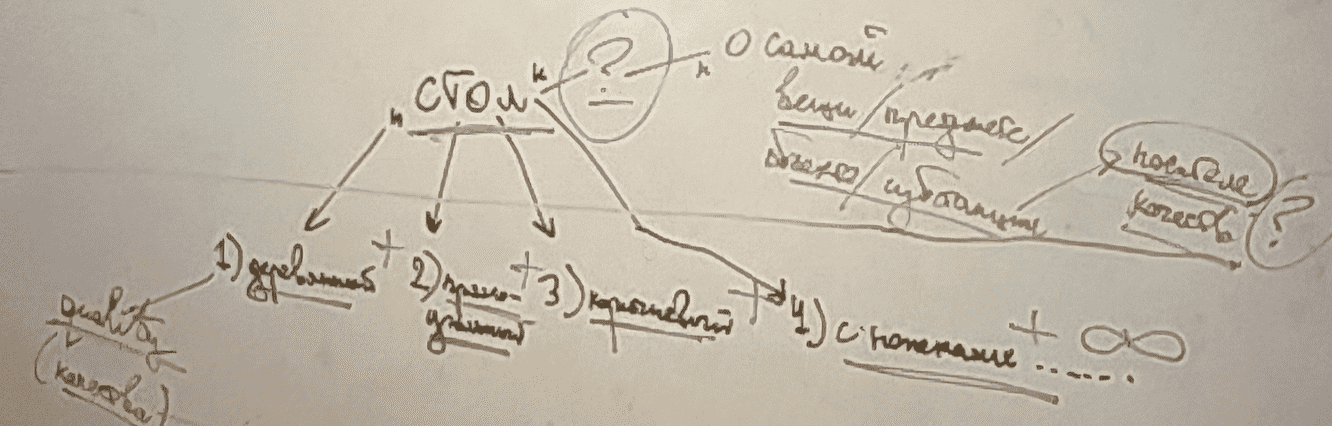 ? О самой
СТОЛ
вещи / предмете /
объекте / субстанции
носителе
качеств ?
1) деревянный + 2) прямо-
угольный
+ 3) коричневый + 4) с ножками ...... + ∞
quality
(качества)